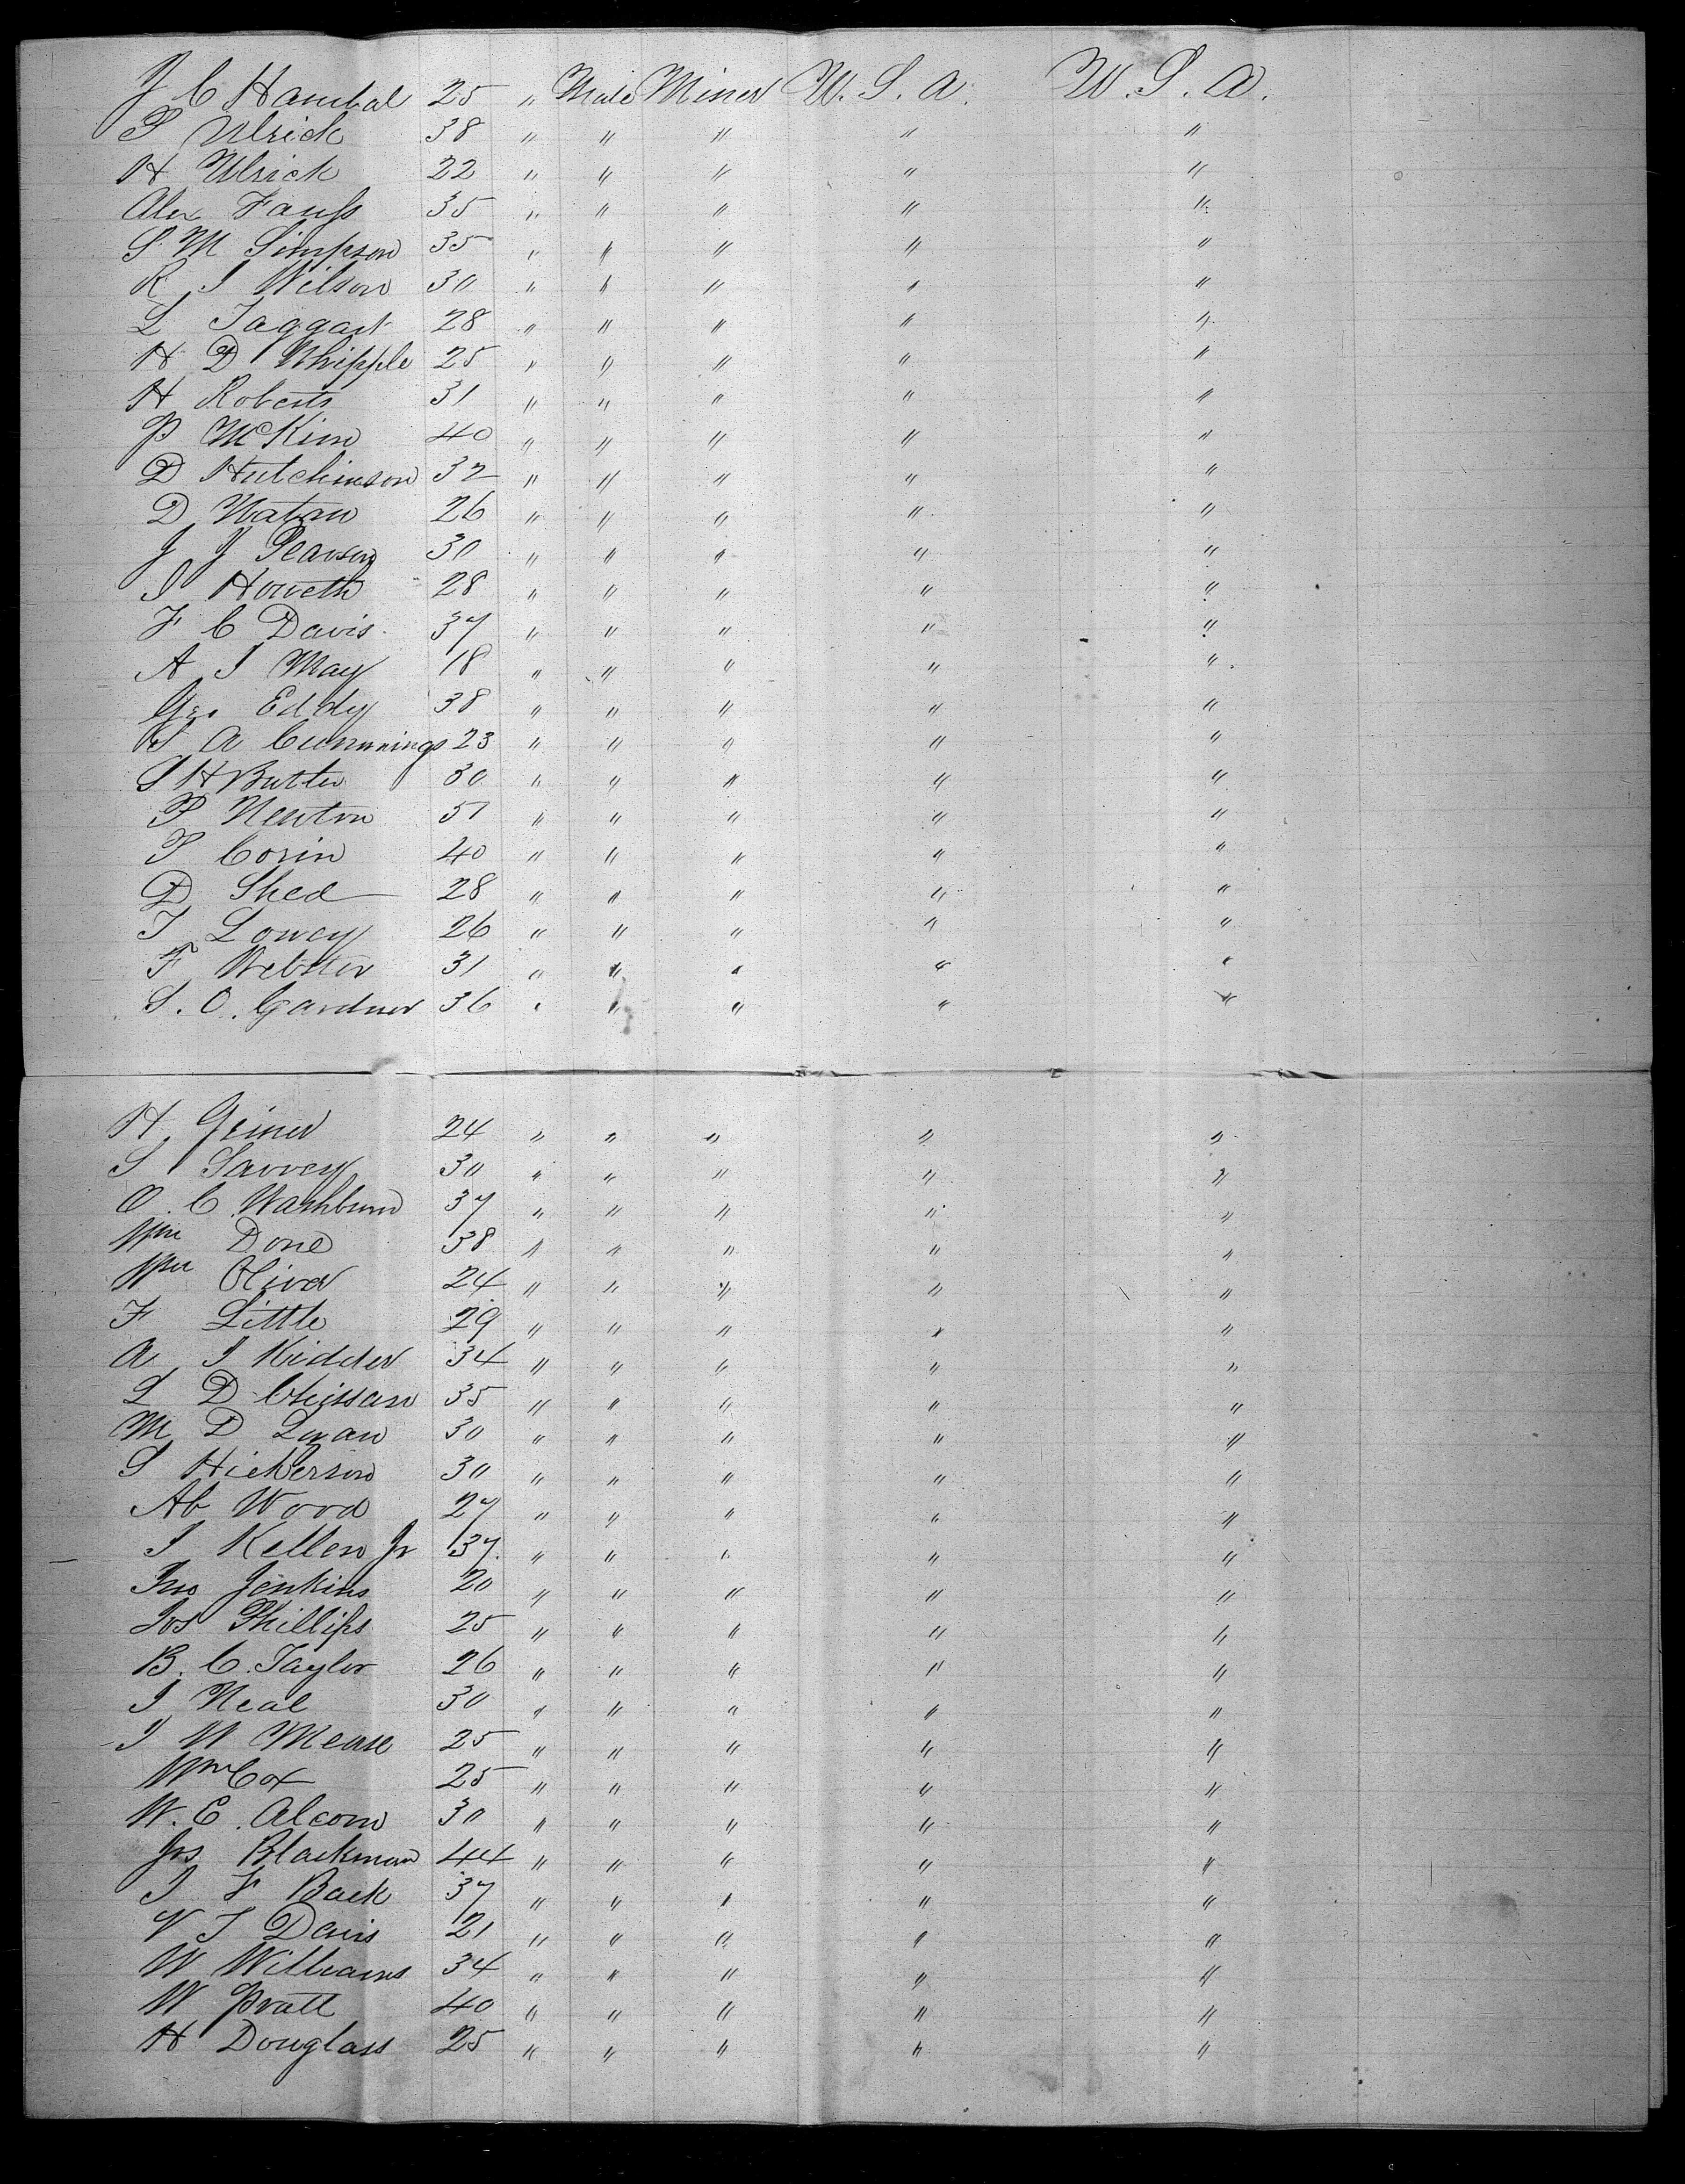 J C Hambal 25 " Male Miner U. S. A. U. S. A.
P Ulrick 38 " " " " "
H Ulrick 22 " " " " "
Alex Fauss 35 " " " " "
S M Simpson 35 " " " " "
R J Wilson 30 " " " " "
L Taggart 28 " " " " "
H D Whipple 25 " " " " "
H Roberts 31 " " " " "
P McKim 40 " " " " "
D Hutchinson 32 " " " " "
D Watson 26 " " " " "
J J Pearson 30 " " " " "
I Horveth 28 " " " " "
F C Davis 37 " " " " "
A J May 18 " " " " "
Geo Eddy 38 " " " " "
S A Cummings 23 " " " " "
S H Butler 30 " " " " "
P Newton 51 " " " " "
P Corin 40 " " " " "
D Shed 28 " " " " "
T Lowey 26 " " " " "
F Webster 31 " " " " "
S. O. Gardner 36 " " " " "
H Griner 24 " " " " "
S Savvey 30 " " " " "
O. C. Washburn 37 " " " " "
Wm Done 38 " " " " "
Wm Oliver 24 " " " " "
F Little 29 " " " " "
A J Kidder 34 " " " " "
L D Chissan 35 " " " " "
M D Luan 30 " " " " "
S Hickerson 30 " " " " "
Ab Wood 27 " " " " "
J Kellen Jr 37 " " " " "
Jno Jenkins 20 " " " " "
Jos Phillips 25 " " " " "
B. C. Taylor 26 " " " " "
J Neal 30 " " " " "
J W Mease 25 " " " " "
Wm Cox 25 " " " " "
W. E. Alcorn 30 " " " " "
Jos Blackman 44 " " " " "
J F Back 37 " " " " "
V T Davis 21 " " " " "
W Williams 34 " " " " "
W Pratt 40 " " " " "
H Douglass 25 " " " " "